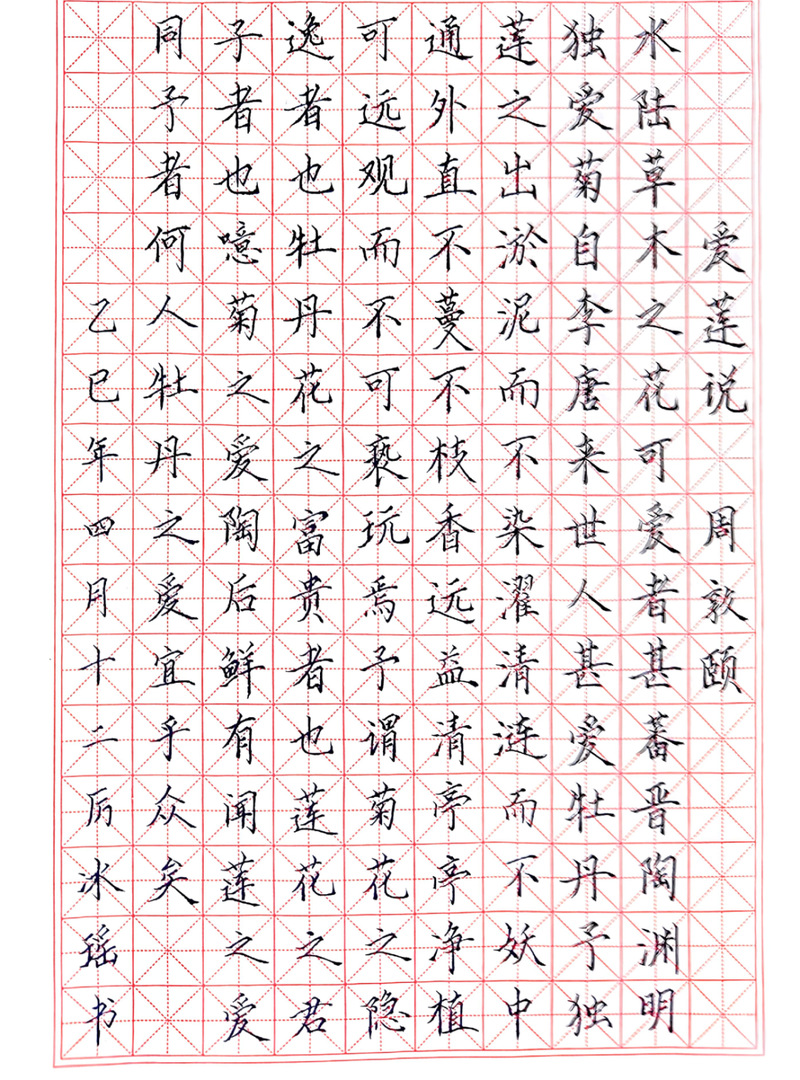 爱莲说 周敦颐
水陆草木之花可爱者甚蕃晋陶渊明
独爱菊自李唐来世人甚爱牡丹予独
莲之出淤泥而不染濯清涟而不妖中
通外直不蔓不枝香远益清亭亭净植
可远观而不可亵玩焉予谓菊花之隐
逸者也牡丹花之富贵者也莲花之君
子者也噫菊之爱陶后鲜有闻莲之爱
同予者何人牡丹之爱宜乎众矣
乙巳年四月十二厉冰瑶书